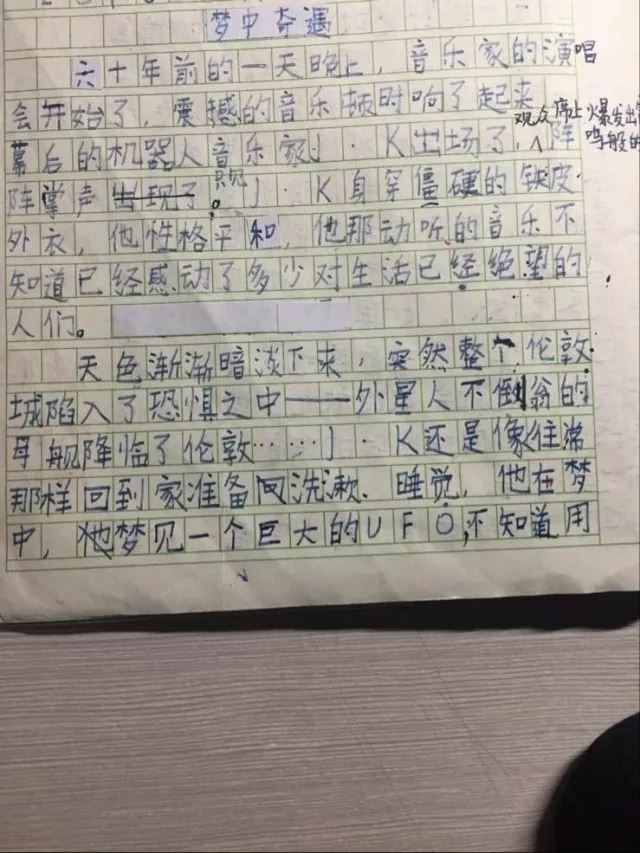 梦中奇遇
六十年前的一天晚上，音乐家的演唱
会开始了，震撼的音乐顿时响了起来
观众席上爆发出
幕后的机器人音乐家J·K出场了，阵
鸣般的
阵掌声出现了。只见J·K身穿僵硬的铁皮
外衣，他性格平和，他那动听的音乐不
知道已经感动了多少对生活已经绝望的
人们。
天色渐渐暗淡下来，突然整个伦敦
城陷入了恐惧之中——外星人不倒翁的
母舰降临了伦敦……J·K还是像往常
那样回到家准备洗漱、睡觉，他在梦
中，他梦见一个巨大的UFO，不知道用